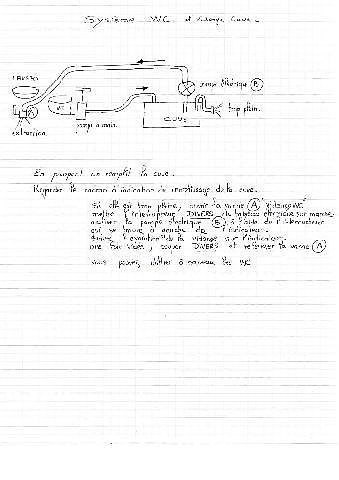 Système WC et vidange Cuve.
LAVABO
pompe éléctrique (B)
WC
A
trop plein.
extraction
pompe à main.
CUVE
En pompant on remplit la cuve.
Regarder le cadran d'indication de remplissage de la cuve.
si elle est trop pleine, ouvrir la vanne (A) "vidange WC"
mettre l'interrupteur DIVERS du tableau éléctrique sur marche
activer la pompe éléctrique (B) à l'aide de l'interrupteur
qui se trouve à gauche de l'indicateur.
suivre l'évolution de la vidange sur l'indicateur.
une fois vidée, couper DIVERS et refermer la vanne (A)
vous pouvez utiliser à nouveau les WC